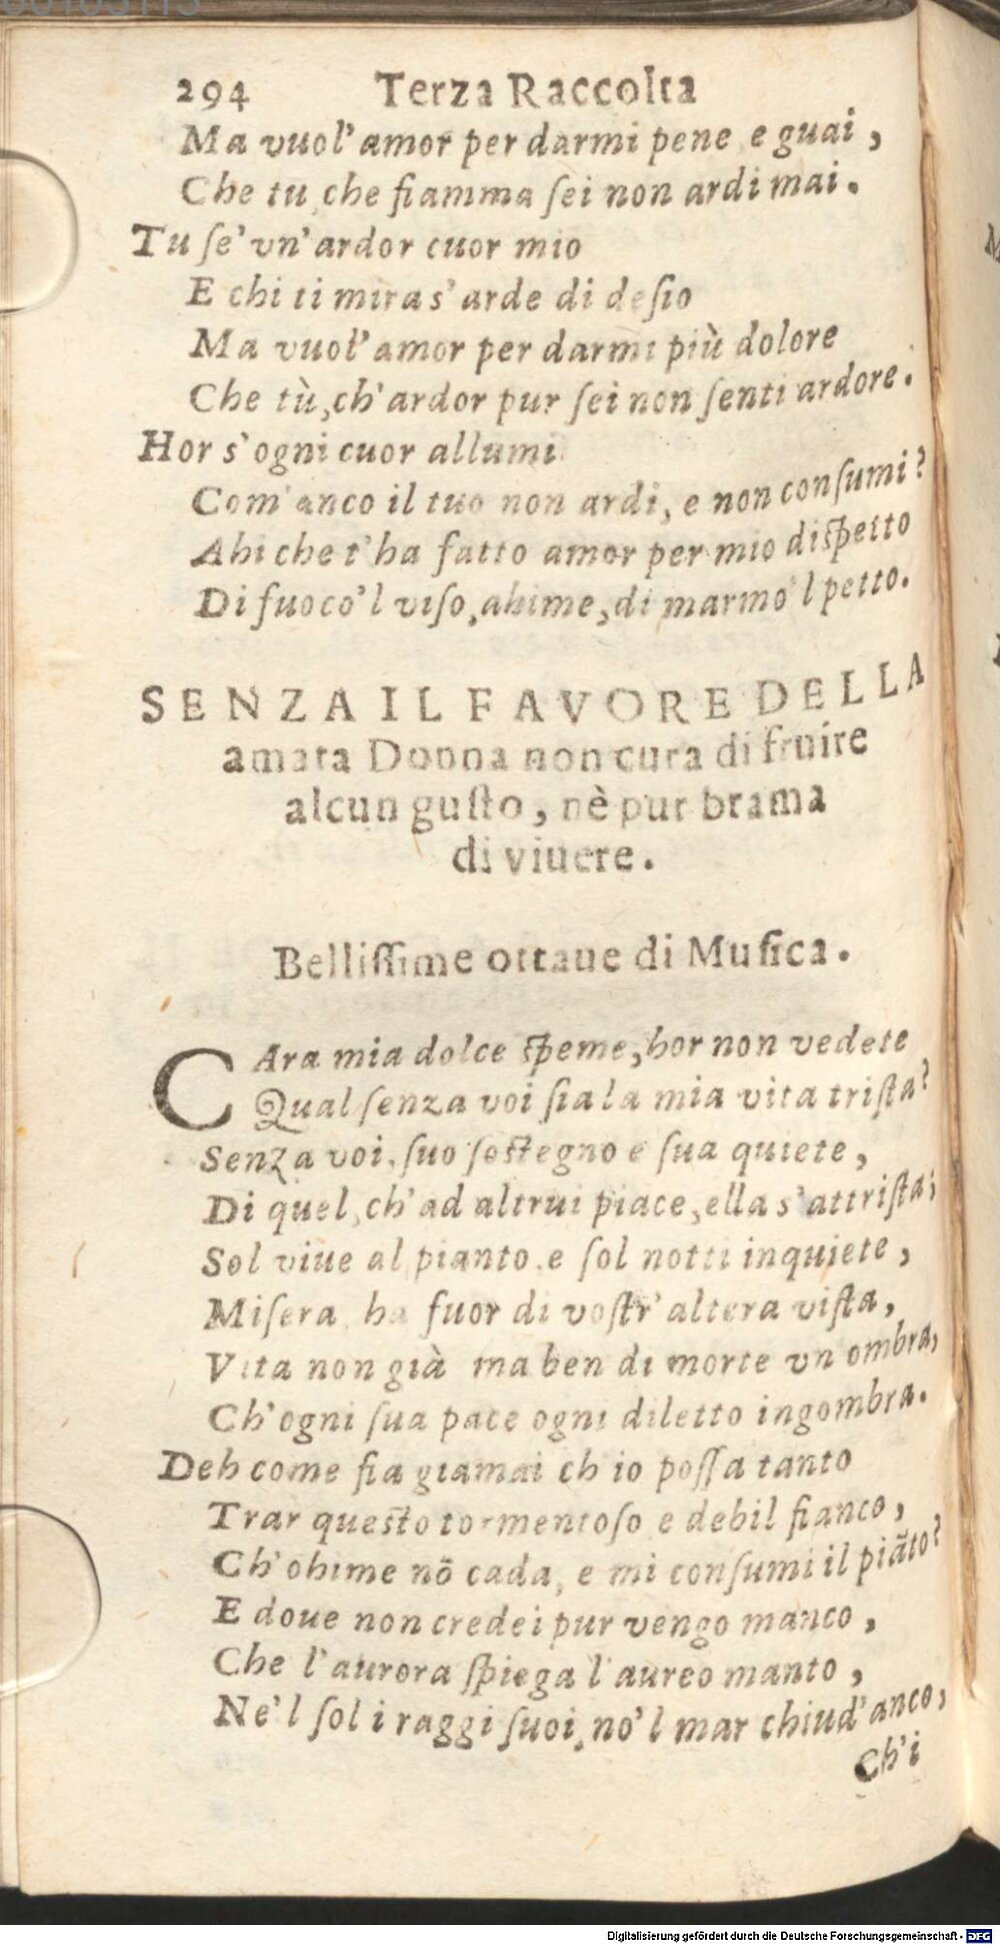 294 Terza Raccolta
Ma vuol' amor per darmi pene e guai,
Che tu che fiamma sei non ardi mai.
Tu se' vn' ardor cuor mio
E chi ti mira s' arde di desio
Ma vuol' amor per darmi più dolore
Che tù, ch' ardor pur sei non senti ardore.
Hor s' ogni cuor allumi
Com' anco il tuo non ardi, e non consumi?
Ahi che t' ha fatto amor per mio dispetto
Di fuoco 'l viso, ahime, di marmo 'l petto.
SENZA IL FAVORE DELLA
amata Donna non cura di fruire
alcun gusto, nè pur brama
di viuere.
Bellissime ottaue di Musica.
CAra mia dolce speme, hor non vedete
Qual senza voi sia la mia vita trista?
Senza voi, suo sostegno e sua quiete,
Di quel, ch' ad altrui piace, ella s' attrista;
Sol viue al pianto e sol notti inquiete,
Misera ha fuor di vostr' altera vista,
Vita non già ma ben di morte vn ombra,
Ch' ogni sua pace ogni diletto ingombra.
Deh come fia giamai ch io possa tanto
Trar questo tormentoso e debil fianco,
Ch' ohime nō cada, e mi consumi il piāto?
E doue non credei pur vengo manco,
Che l' aurora spiega l' aureo manto,
Ne 'l sol i raggi suoi, no 'l mar chiud' anco,
Ch' i
Digitalisierung gefördert durch die Deutsche Forschungsgemeinschaft - DFG